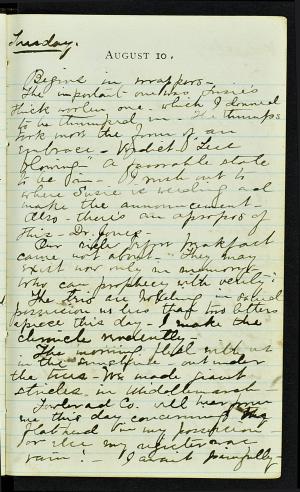 Tuesday.
August 10.
Begins in wrappers -
The important one was Susie's
thick woolen one - which I donned
to be thumped in - The thumps
took most the form of an
embrace - Verdict "Lee
blowing" A favorable state
to be in - I rush out to
where Susie is weeding and
make the announcement -
Also - there's an apropos of
this - Dr. Jones -
Our before breakfast
came not about - "They may
exist now only in memory"
who can prophecy with verity?
The trio are in
possession no less than two letters
apiece this day - I make the
chronicle
The morning still with us
in the out under
the trees - We made giant
strides in Middlemarch
& Co. will hear from
me this day concerning the
flat and on my possession -
or else my
vain! - I await painfully -